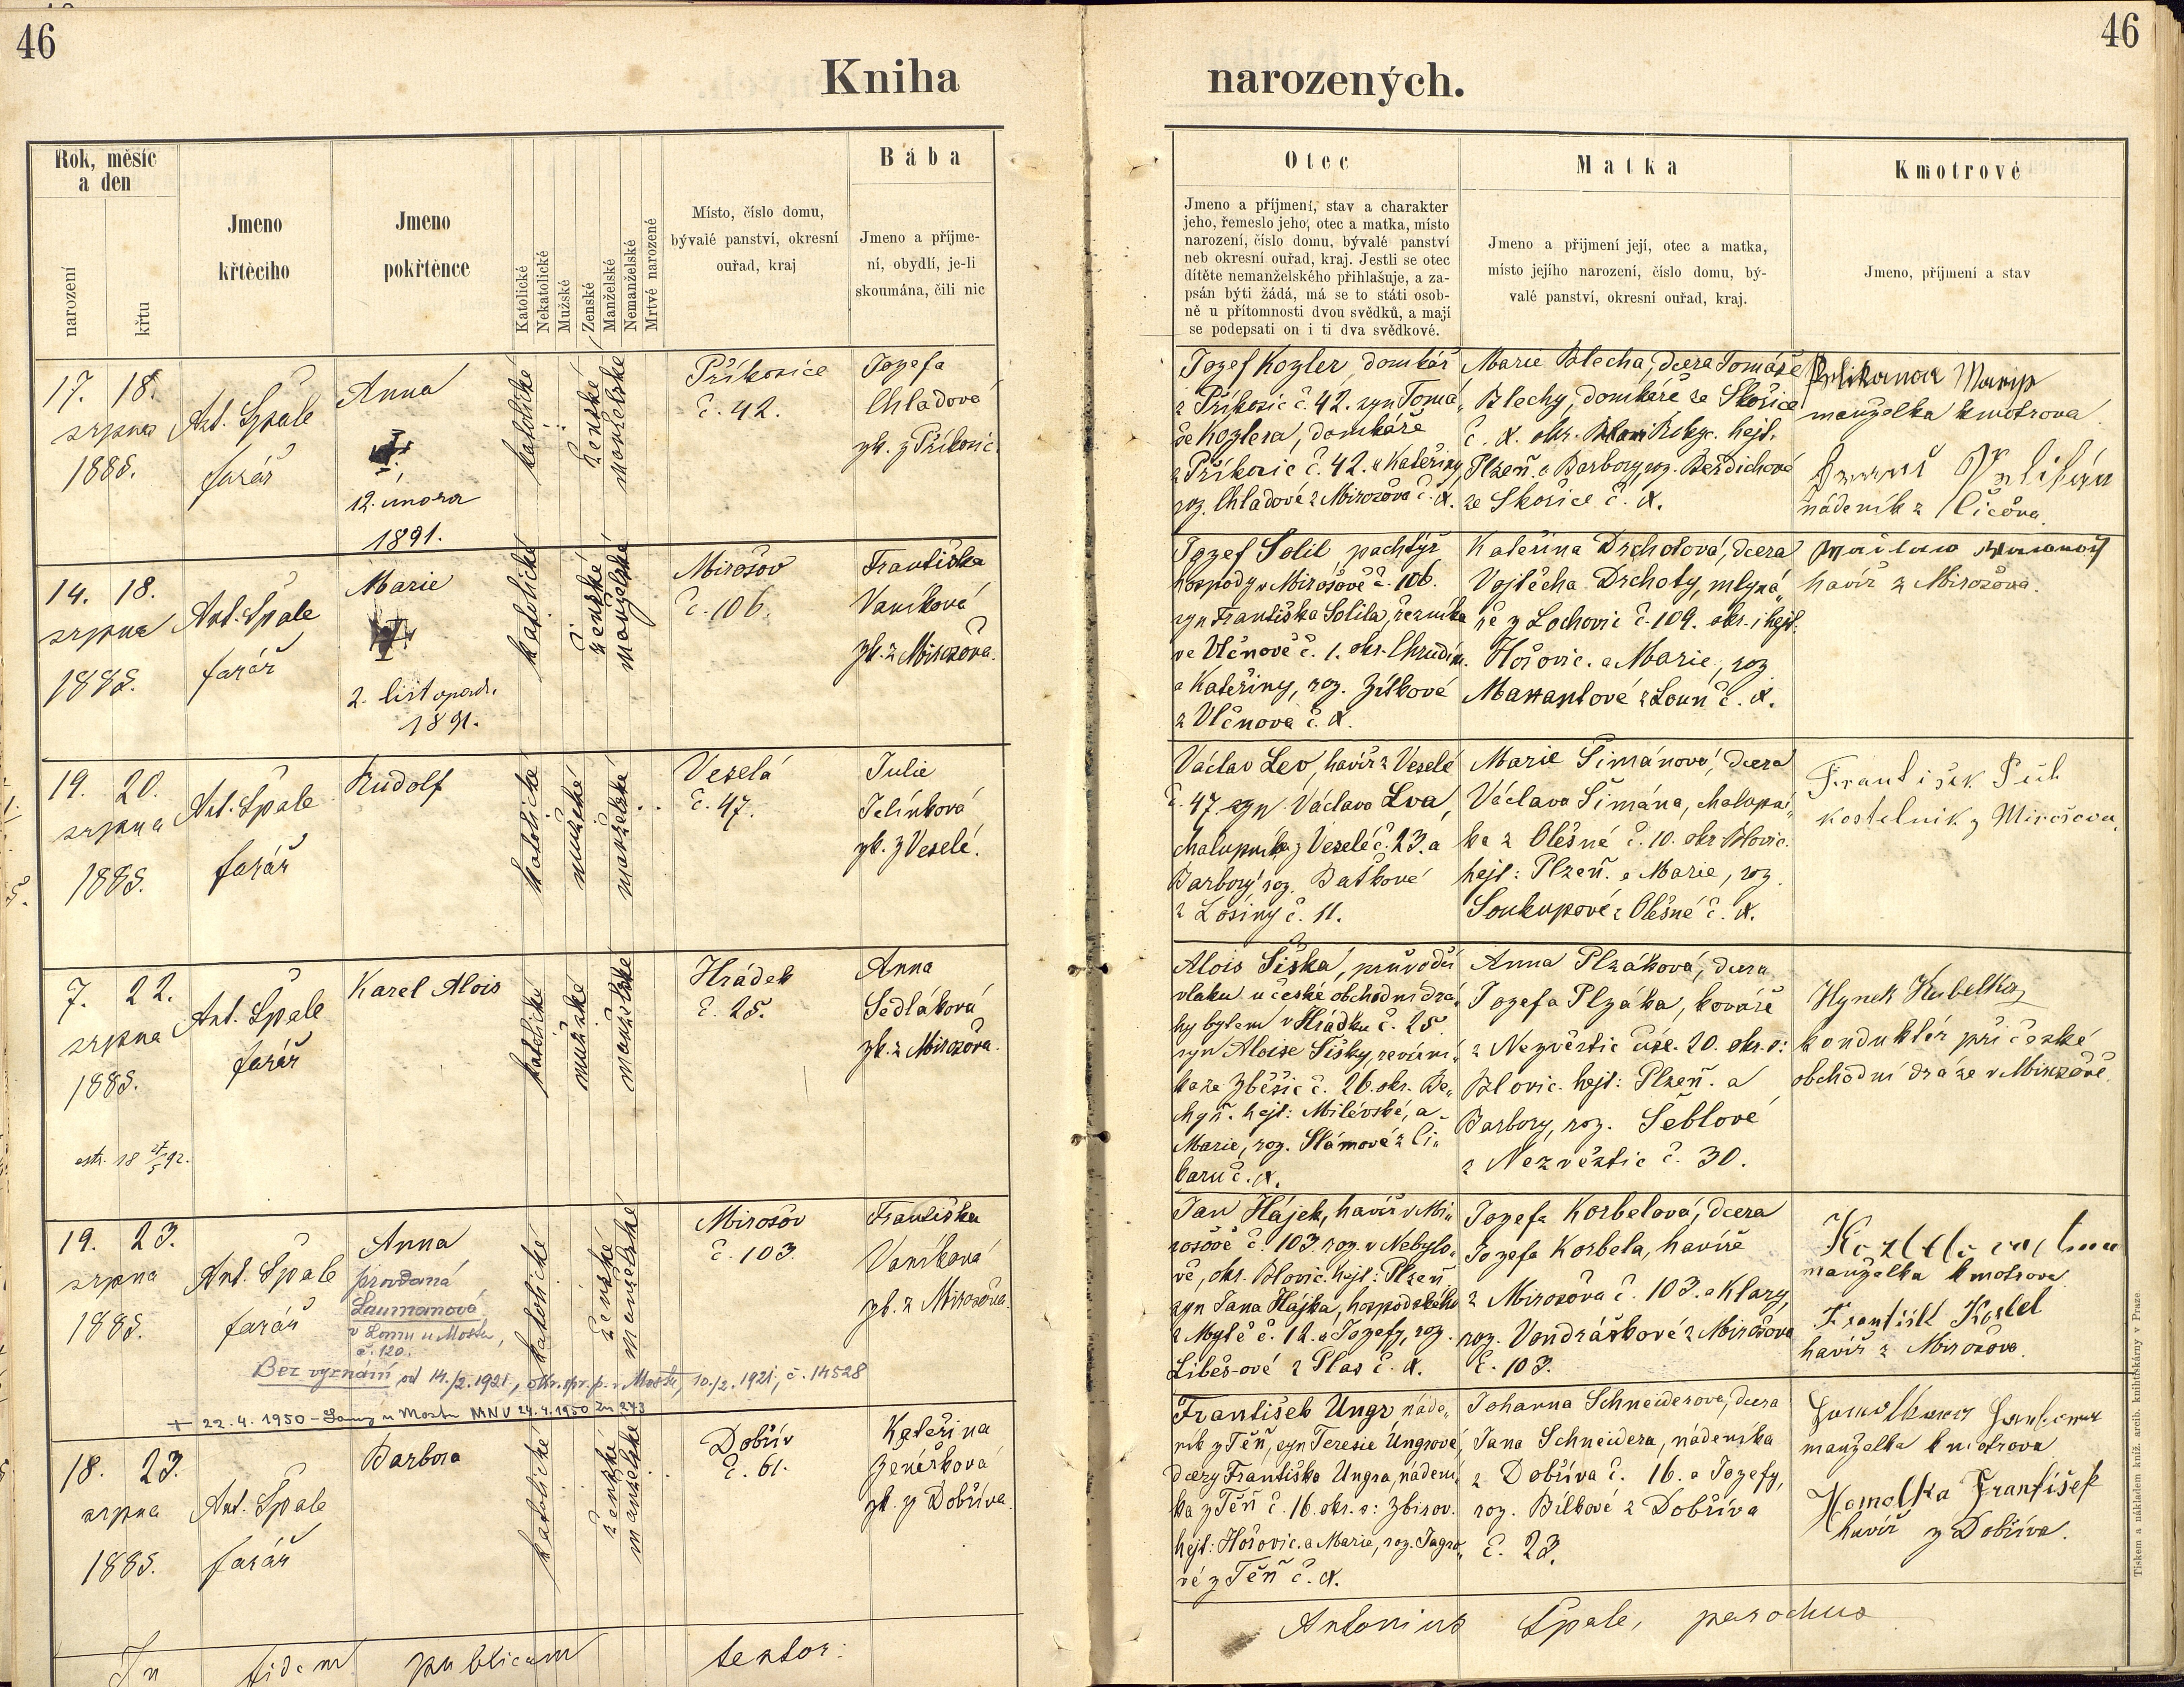 46
Kniha
Rok, měsíc
a den
narození
křtu
Jmeno
křtěcího
Jmeno
pokřtěnce
Katolické
Nekatolické
Mužské
Ženské
Manželské
Nemanželské
Mrtvé narozené
Místo, číslo domu,
bývalé panství, okresní
ouřad, kraj
Bába
Jmeno a příjme-
ní, obydlí, je-li
skoumána, čili nic
17. 18.
srpna
1885.
Ant. Špale
farář
Anna
12. února
1891.
katolické
ženské
manželské
Příkosice
č. 42.
Jozefa
Chladová
zk. z Příkosic.
14. 18.
srpna
1885.
Ant. Špale
farář
Marie
2. listopadu
1891.
katolické
ženské
manželské
Mirošov
č. 106.
Františka
Vaníková
zk. z Mirošova.
19. 20.
srpna
1885.
Ant. Špale
farář
Rudolf
katolické
mužské
manželské
Veselá
č. 47.
Julie
Jelínková
zk. z Veselé.
7. 22.
srpna
1885.
Ant. Špale
farář
Karel Alois
katolické
mužské
manželské
Hrádek
č. 25.
Anna
Sedláková
zk. z Mirošova.
19. 23.
srpna
1885.
Ant. Špale
farář
Anna
provdaná
Laumanová
v Lomu u Mostu,
č. 120.
Bez vyznání od 14./2. 1921, okr. spr. p. v Mostě, 10./2. 1921, č. 14528
+ 22. 4. 1950 - Lomy u Mostu MNV 24. 4. 1950 zn 273
katolické
ženské
manželské
Mirošov
č. 103.
Františka
Vaníková
zk. z Mirošova.
18. 23.
srpna
1885.
Ant. Špale
farář
Barbora
katolické
ženské
manželské
Dobřív
č. 61.
Kateřina
Ženíšková
zk. z Dobříva.
In fidem publicam
46
narozených.
Otec
Jmeno a příjmení, stav a charakter
jeho, řemeslo jeho, otec a matka, místo
narození, číslo domu, bývalé panství
neb okresní ouřad, kraj. Jestli se otec
dítěte nemanželského přihlašuje, a za-
psán býti žádá, má se to státi osob-
ně u přítomnosti dvou svědků, a mají
se podepsati on i ti dva svědkové.
Matka
Jmeno a přijmení její, otec a matka,
místo jejího narození, číslo domu, bý-
valé panství, okresní ouřad, kraj.
Kmotrové
Jmeno, příjmení a stav
Jozef Kozler, domkář
z Příkosic č. 42. syn Tomá„
še Kozlera, domkáře
z Příkosic č. 42. a Kateřiny,
roz. Chladové z Mirošova č. X.
Marie Blecha, dcera Tomáše
Blechy, domkáře ze Skořice
č. X. okr. Rokyc. hejt.
Plzeň. a Barbory roz. Beřdichové
ze Skořice č. X.
manželka kmotrova
nádeník z Čičova.
Jozef Solil pachtýř
hospody v Mirošově č. 106.
syn Františka Solila, řezníka
ve Vlčnově č. 1. okr. Chrudim.
a Kateřiny, roz. Zítkové
z Vlčnova č. X.
Kateřina Drchotová, dcera
Vojtěcha Drchoty, mlyná„
ře z Lochovic č. 109. okr. i hejt.
Hořovic. a Marie, roz.
z Loun č. X.
havíř z Mirošova.
Václav Lev, havíř z Veselé
č. 47. syn Václava Lva,
chalupníka z Veselé č. 23. a
Barbory roz. Baťkové
z Losiny č. 11.
Marie Šimánová, dcera
Václava Šimána, chalupní„
ka z Olešné č. 10. okr. Blovic.
hejt: Plzeň. a Marie, roz.
Soukupové z Olešné č. X.
František Půl
kostelník z Mirošova.
Alois Šiška, průvodčí
vlaku u české obchodní drá„
hy bytem v Hrádku č. 25.
syn Aloise Šišky, revírní„
ka ze Zběšic č. 26. okr. Be„
chyň. hejt: Milévské, a
Marie, roz. Slámové z Či„
karu č. X.
Anna Plzáková, dcera
Jozefa Plzáka, kováře
z Nezvěstic čís. 20. okr. o:
Blovic. hejt: Plzeň. a
Barbory, roz. Šeblové
z Nezvěstic č. 30.
Hynek Kubelka,
konduktér při české
obchodní dráze v Mirošově.
Jan Hájek, havíř v Mi„
rošově č. 103. roz. v Nebylo„
vě, okr. Blovic. hejt: Plzeň.
syn Jana Hájka, hospodského
z Mýtě č. 12. a Jozefy, roz.
Libeš-ové z Plas č. X.
Jozefa Korbelová, dcera
Jozefa Korbela, havíře
z Mirošova č. 103. a Klary,
roz. Vondráškové z Mirošova
č. 103.
manželka kmotrova
havíř z Mirošova.
František Ungr náde„
ník z Těň, syn Teresie Ungrové,
dcery Františka Ungra, nádení„
ka z Těň č. 16. okr. o: Zbirov.
hejt: Hořovic. a Marie, roz. Jagro„
vé z Těň č. X.
Johanna Schneiderova, dcera
Jana Schneidera, nádeníka
z Dobříva č. 16. a Jozefy,
roz. Bílkové z Dobříva
č. 23.
manželka kmotrova
Homolka František
havíř z Dobříva.
Antonius Špale, parochus
Tiskem a nákladem kniž. arcib. knihtiskárny v Praze.